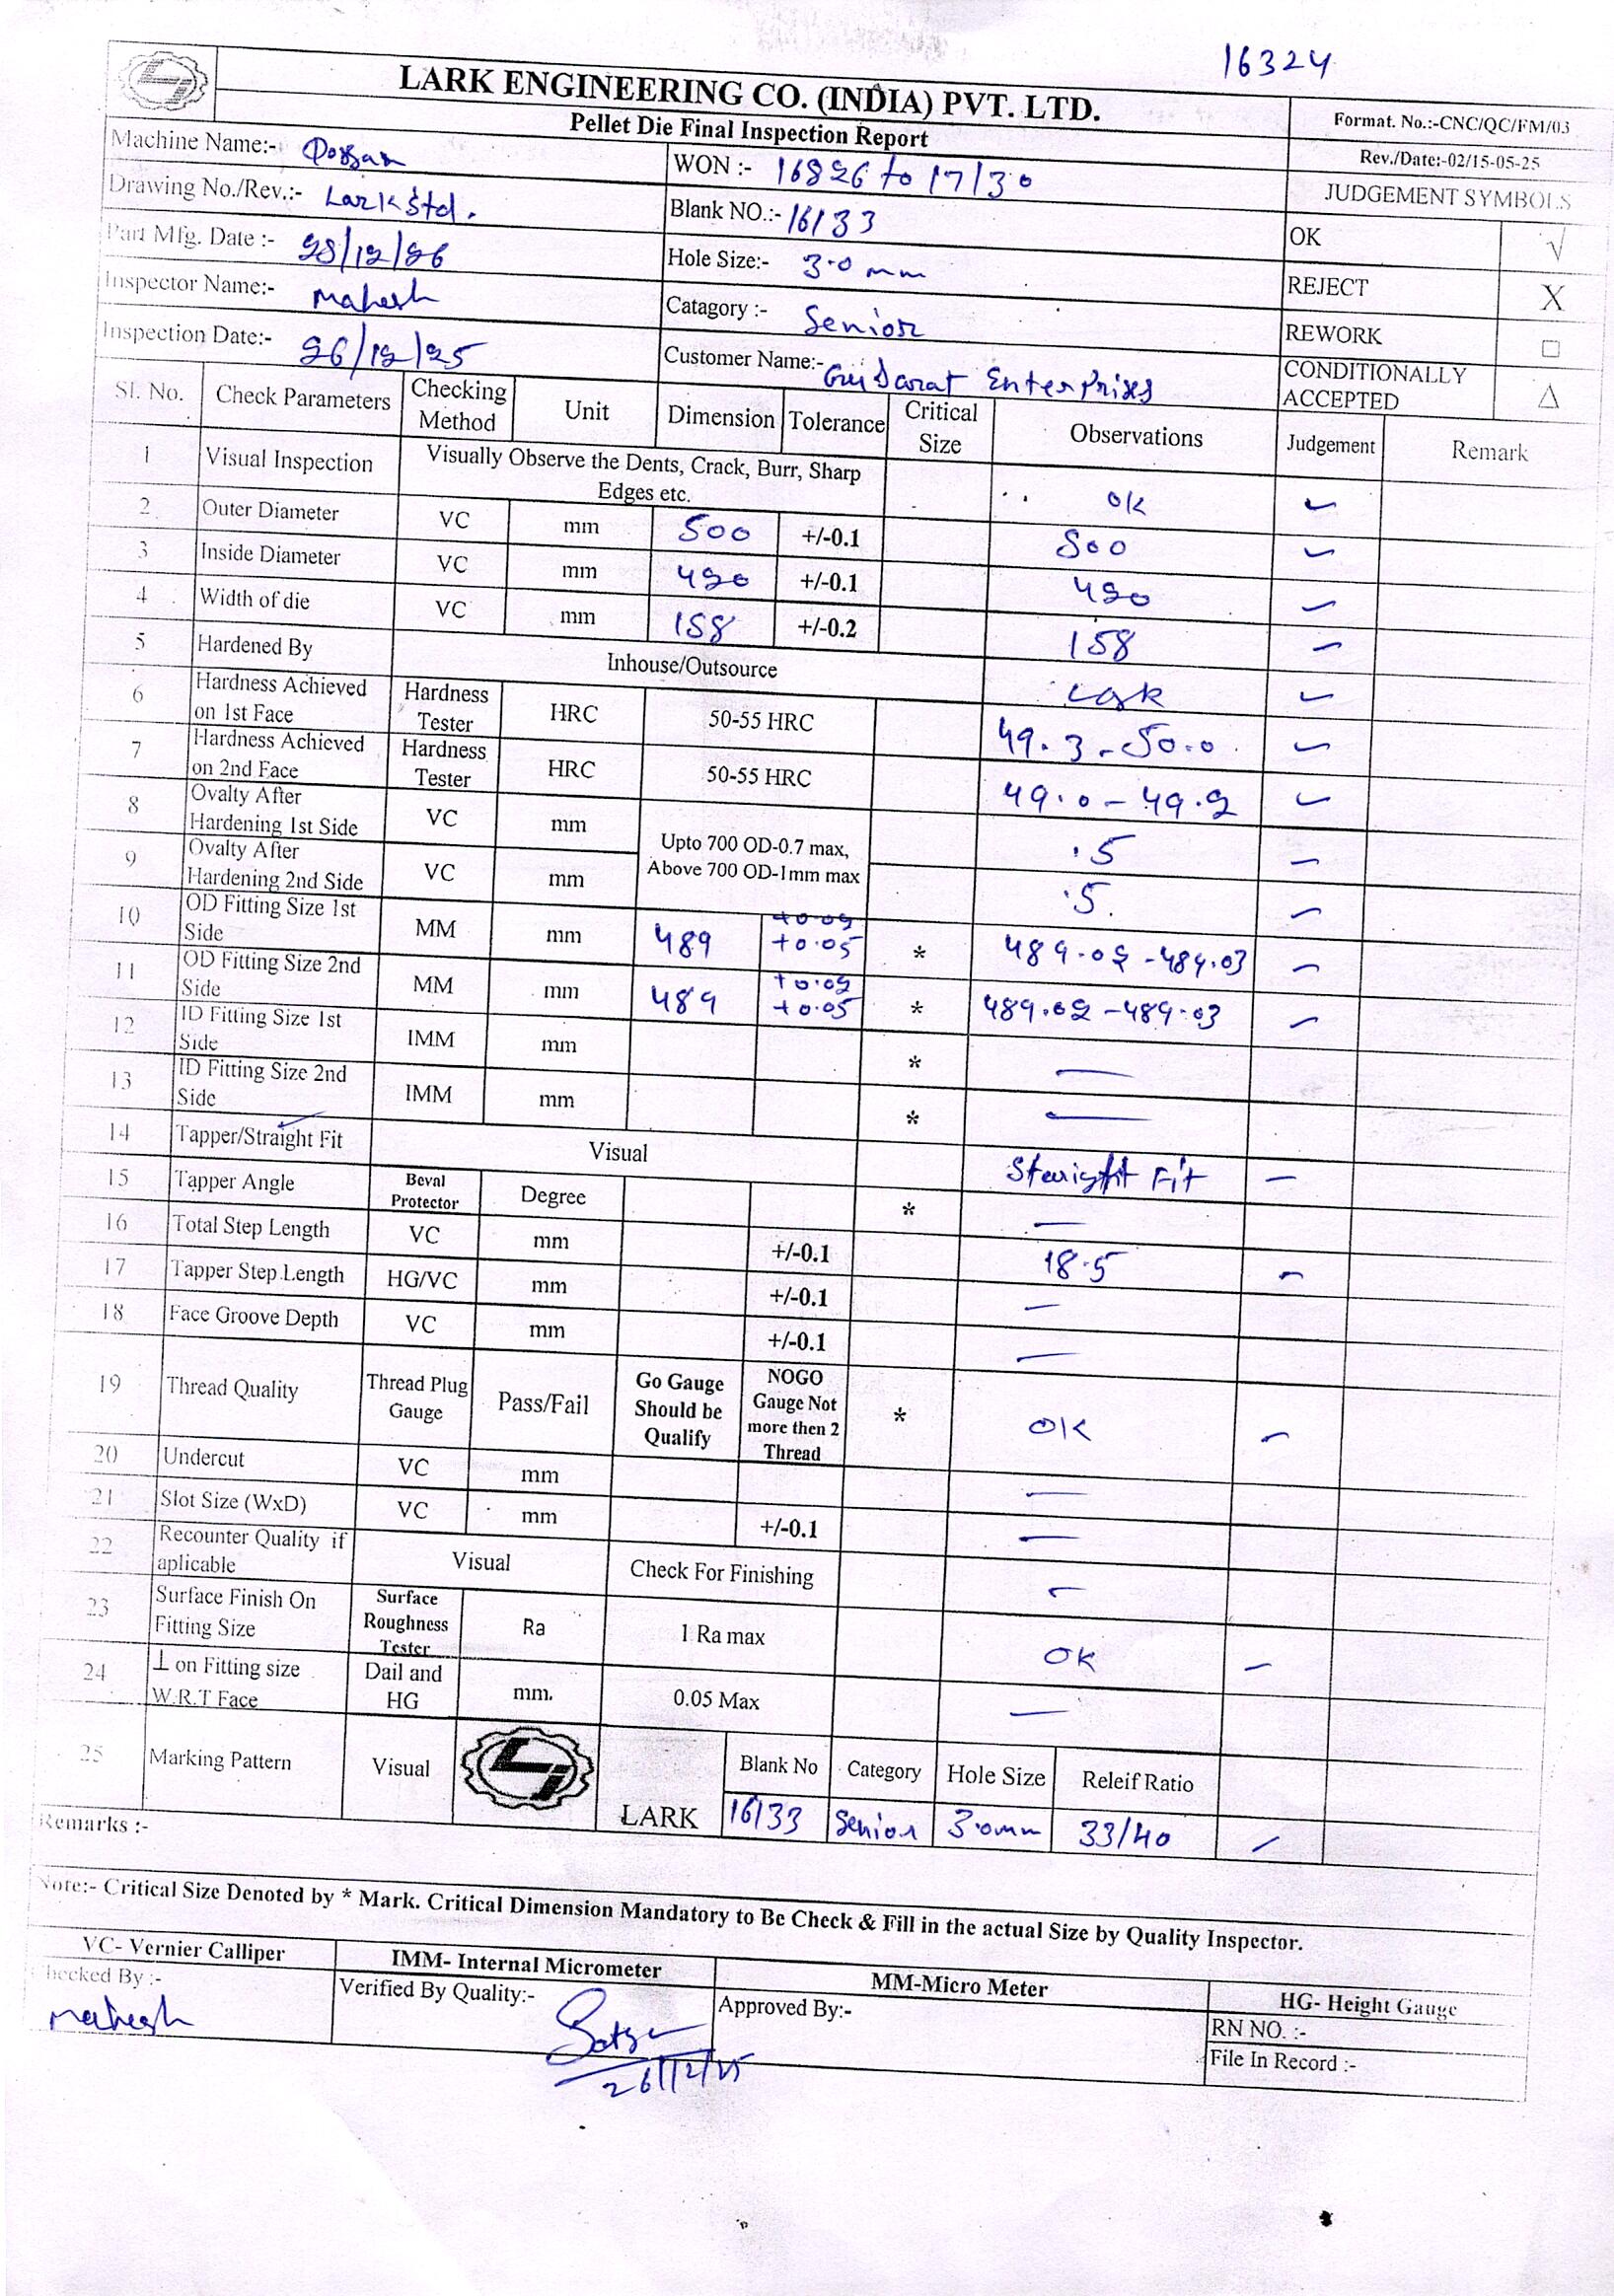 16324
LARK ENGINEERING CO. (INDIA) PVT. LTD.
Pellet Die Final Inspection Report
Format. No.:-CNC/QC/FM/03
Rev./Date:-02/15-05-25
Machine Name:-
WON :- 16826 to 17130
JUDGEMENT SYMBOLS
Drawing No./Rev.:- Lark Std.
Blank NO.:- 16133
OK √
Part Mfg. Date :-
Hole Size:- 3.0 mm
REJECT X
Inspector Name:- Mahesh
Catagory :- Senior
REWORK □
Inspection Date:- 26/12/25
Customer Name:- Enterprises
CONDITIONALLY ACCEPTED △
Sl. No. Check Parameters Checking Method Unit Dimension Tolerance Critical Size Observations Judgement Remark
1 Visual Inspection Visually Observe the Dents, Crack, Burr, Sharp Edges etc. OK
2 Outer Diameter VC mm 500 +/-0.1 500
3 Inside Diameter VC mm 420 +/-0.1 420
4 Width of die VC mm 158 +/-0.2 158
5 Hardened By Inhouse/Outsource
6 Hardness Achieved on 1st Face Hardness Tester HRC 50-55 HRC 49.3 - 50.0
7 Hardness Achieved on 2nd Face Hardness Tester HRC 50-55 HRC 49.0 - 49.2
8 Ovalty After Hardening 1st Side VC mm Upto 700 OD-0.7 max, Above 700 OD-1mm max .5
9 Ovalty After Hardening 2nd Side VC mm .5
10 OD Fitting Size 1st Side MM mm 489 +0.02 +0.05 * 489.02 - 489.03
11 OD Fitting Size 2nd Side MM mm 489 +0.02 +0.05 * 489.02 - 489.03
12 ID Fitting Size 1st Side IMM mm * —
13 ID Fitting Size 2nd Side IMM mm * —
14 Tapper/Straight Fit Visual Straight Fit
15 Tapper Angle Beval Protector Degree * —
16 Total Step Length VC mm +/-0.1 18.5
17 Tapper Step Length HG/VC mm +/-0.1 —
18 Face Groove Depth VC mm +/-0.1 —
19 Thread Quality Thread Plug Gauge Pass/Fail Go Gauge Should be Qualify NOGO Gauge Not more then 2 Thread * OK
20 Undercut VC mm —
21 Slot Size (WxD) VC mm +/-0.1 —
22 Recounter Quality if aplicable Visual Check For Finishing —
23 Surface Finish On Fitting Size Surface Roughness Tester Ra 1 Ra max OK
24 ⊥ on Fitting size W.R.T Face Dail and HG mm. 0.05 Max —
25 Marking Pattern Visual LARK Blank No Category Hole Size Releif Ratio
16133 Senior 3.0mm 33/40
Remarks :-
Note:- Critical Size Denoted by * Mark. Critical Dimension Mandatory to Be Check & Fill in the actual Size by Quality Inspector.
VC- Vernier Calliper IMM- Internal Micrometer MM-Micro Meter HG- Height Gauge
Checked By :- Mahesh
Verified By Quality:- 26/12/25
Approved By:-
RN NO. :-
File In Record :-